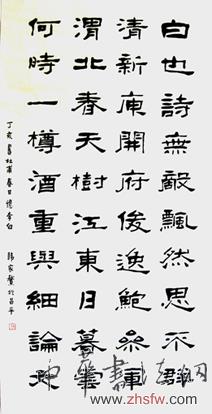 白也詩無敵飄然思不群
清新庾開府俊逸鮑參軍
渭北春天樹江東日暮雲
何時一樽酒重與細論文
丁亥書杜甫春日憶李白
於昌平
中華書法網
www.zhsfw.com